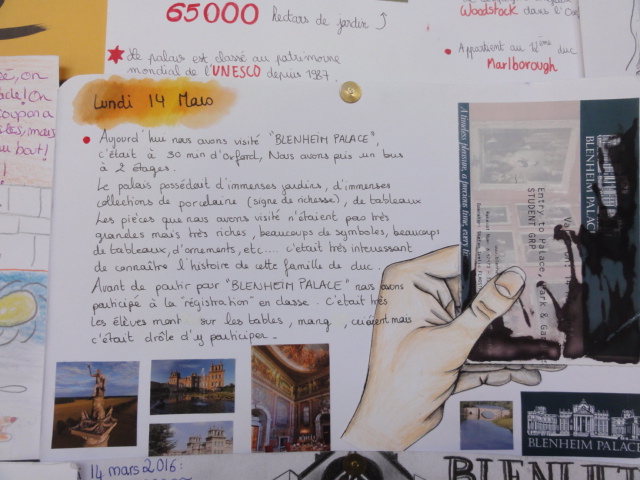 65000 hectars de jardin
Woodstock dans l'Ox
Le palais est classé au patrimoine
mondial de l'UNESCO depuis 1987.
Appartient au 12ème duc
Marlborough
Lundi 14 Mars
Aujourd'hui nous avons visité "BLENHEIM PALACE",
c'était à 30 min d'Oxford, Nous avons pris un bus
à 2 étages.
Le palais possédait d'immenses jardins, d'immenses
collections de porcelaine (signe de richesse), de tableaux
Les pièces que nous avons visité n'étaient pas très
grandes mais très riches, beaucoups de symboles, beaucoups
de tableaux, d'ornements, etc... c'était très interessant
de connaître l'histoire de cette famille de duc.
Avant de partir par "BLENHEIM PALACE" nous avons
participé à la "régistration" en classe. C'était très
Les élèves mont sur les tables, mang, criéent mais
c'était drôle d'y participer.
A timeless pleasure, a precious time, every ti
Entry to Palace, Park & Gar
STUDENT GR
BLENHEIM PALAC
BLENHEIM PALACE
14 mars 2016:
BLENHE